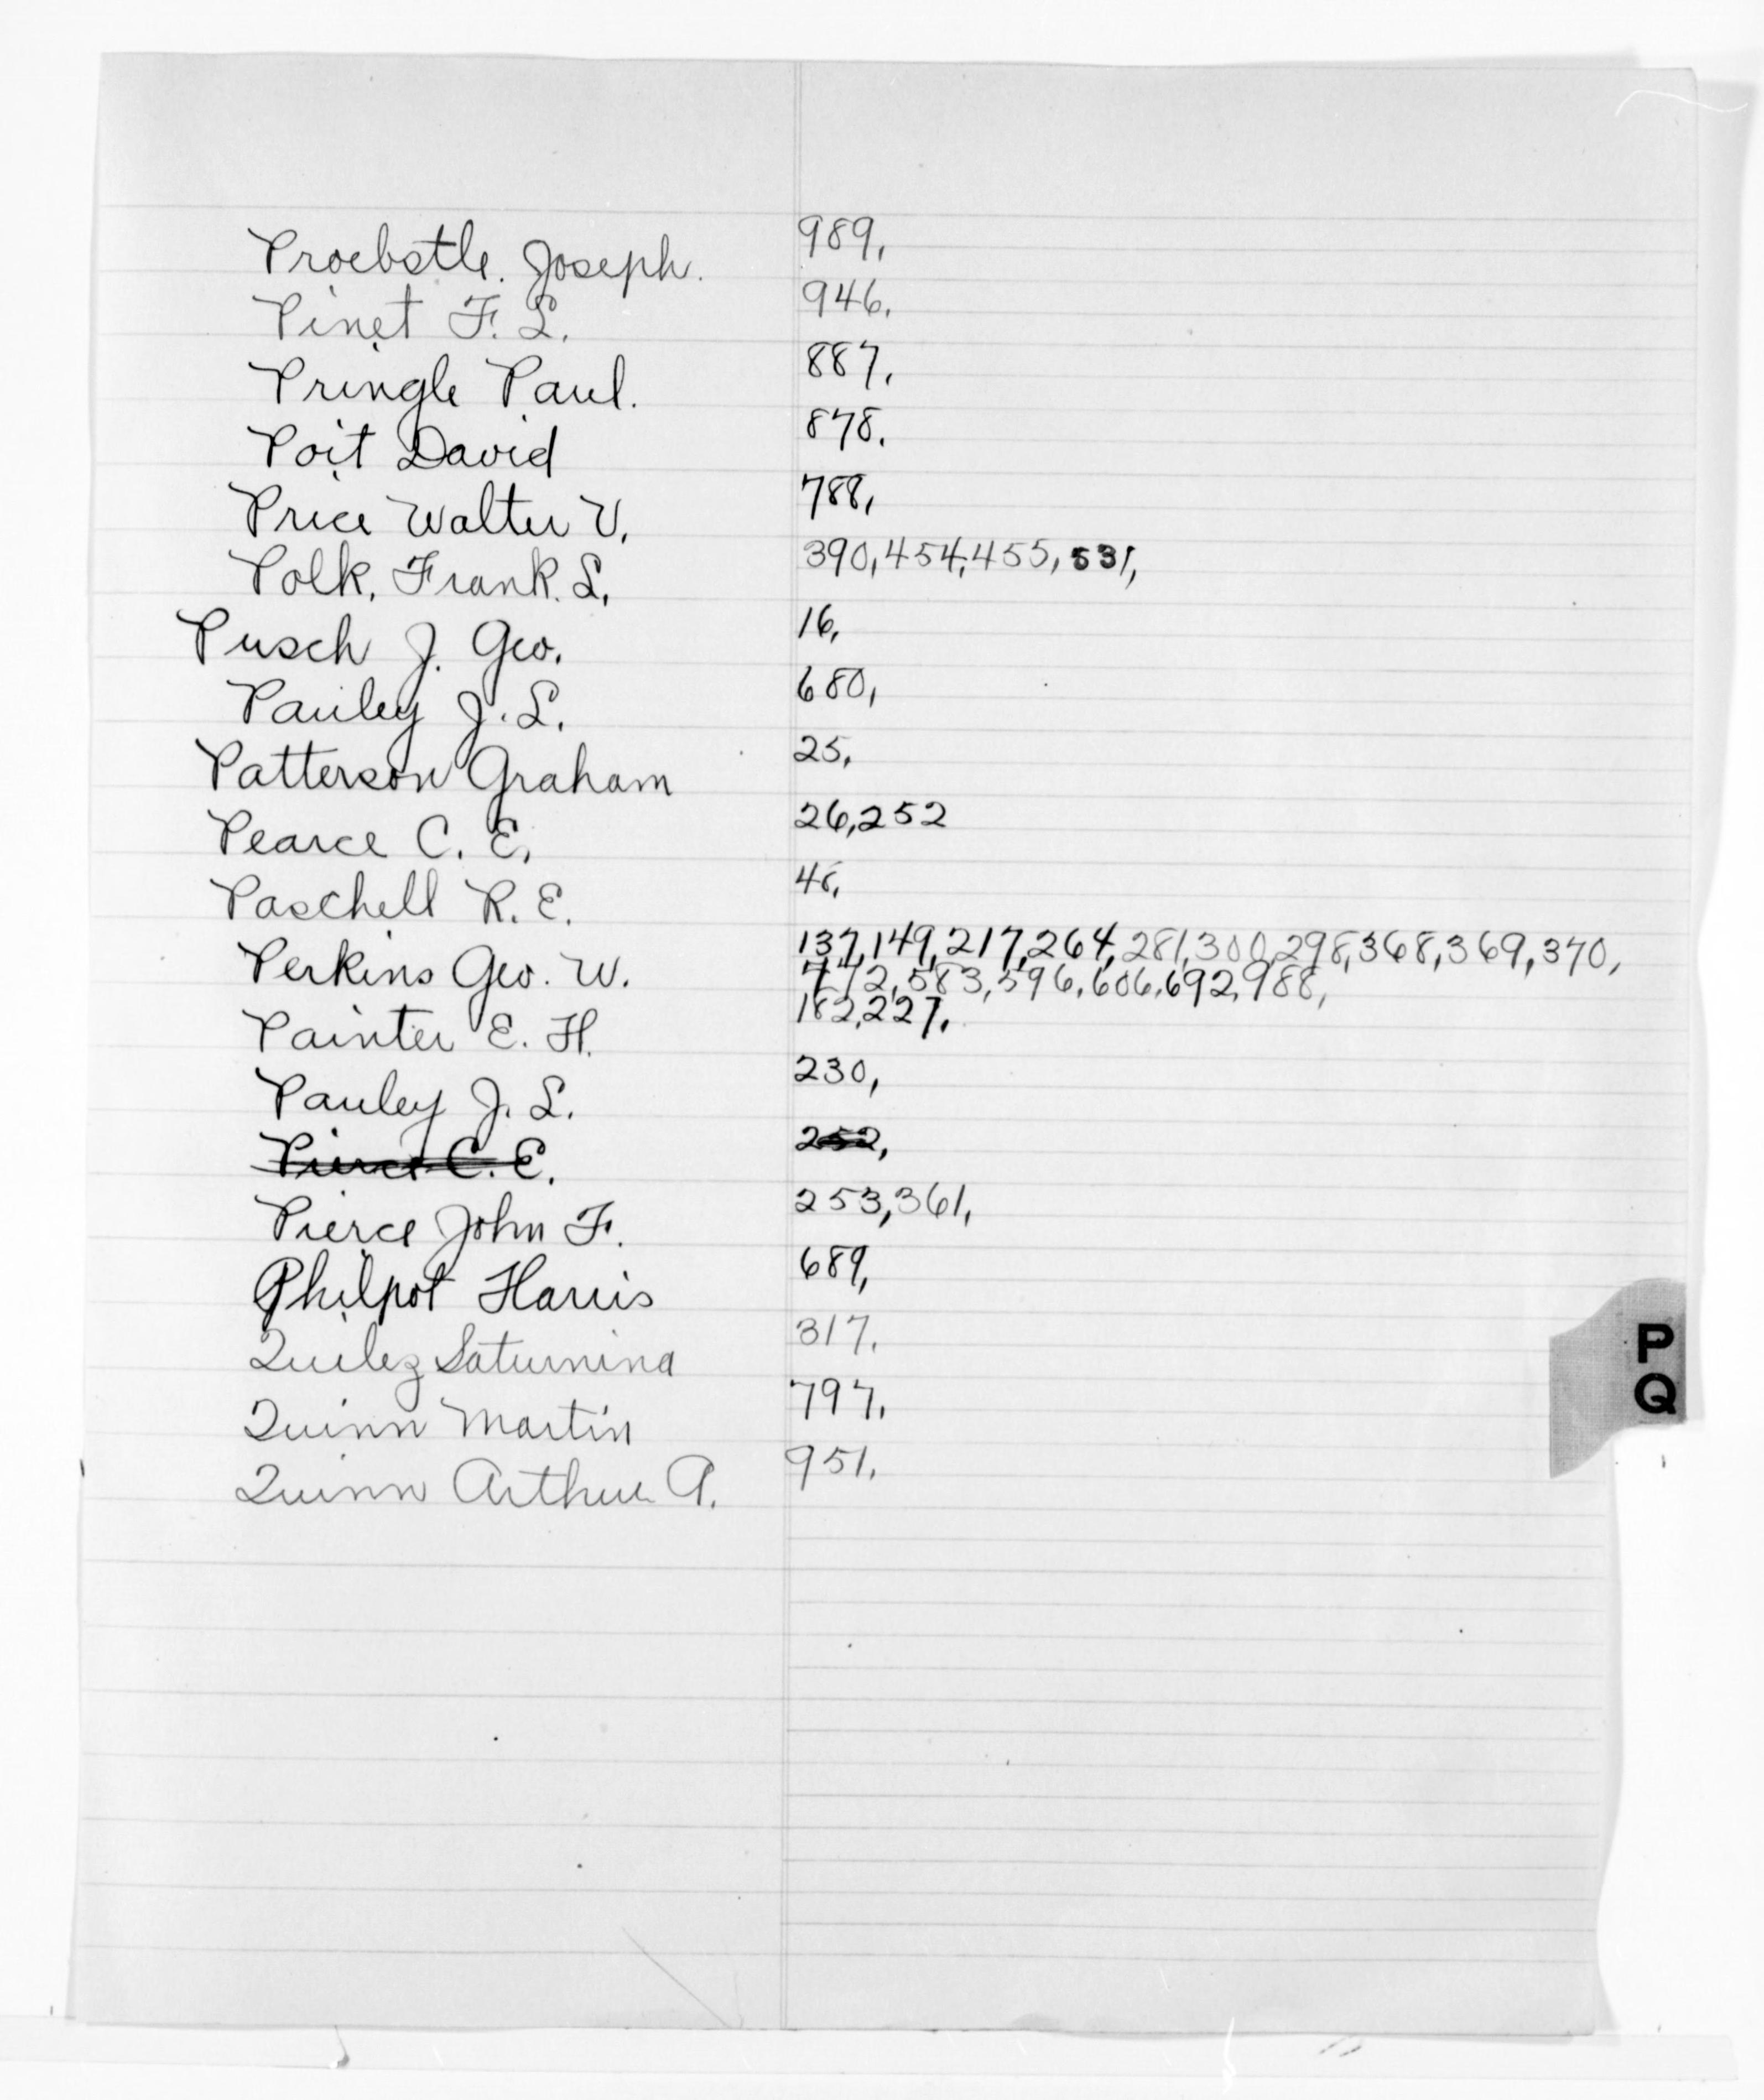 Proebstle. Joseph. 989,
Pinet F. L. 946,
Pringle Paul. 887,
Poit David 878.
Price Walter V. 788,
Polk, Frank. L. 390,454,455,531,
Pusch J. Geo. 16,
Pauley J. L. 680,
Patterson Graham 25,
Pearce C. E, 26,252
Paschell R. E. 48,
Perkins Geo. W. 137,149,217,264,281,300,298,368,369,370,
583,596,606,692,988,
Painter E. H. 182,227,
Pauley J. L. 230,
Pierce C. E. 252,
Pierce John F. 253,361,
Philpot Harris 689,
Quilez Saturnina 317,
Quinn Martin 797,
Quinn Arthur A. 951,
P
Q